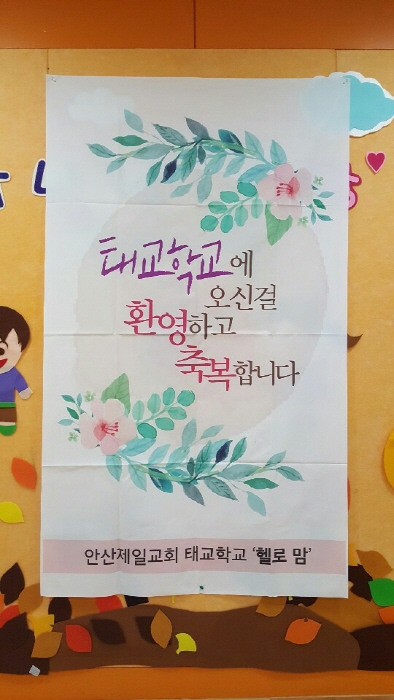 태교학교에
오신걸
환영하고
축복합니다
안산제일교회 태교학교 '헬로 맘'